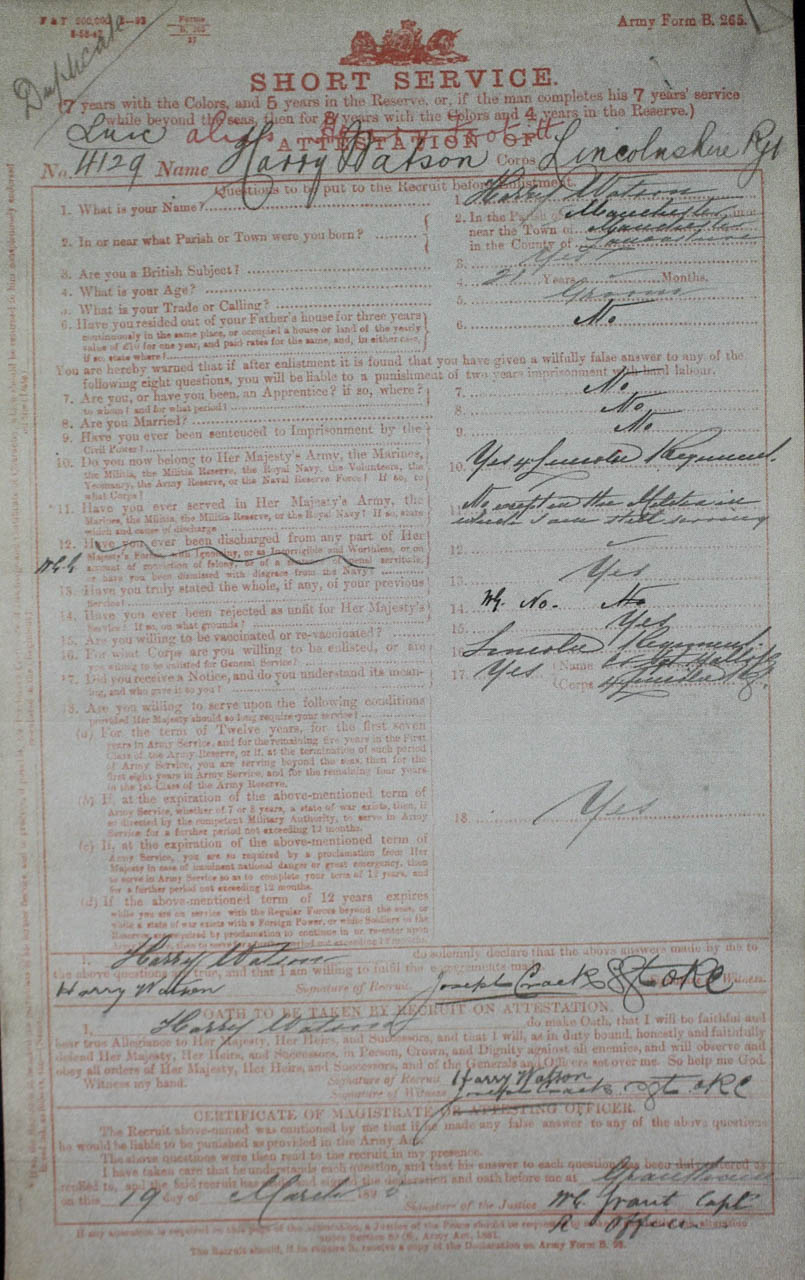 Duplicate
Forms
B. 265
Army Form B. 265.
SHORT SERVICE.
(7 years with the Colors, and 5 years in the Reserve, or, if the man completes his 7 years' service
while beyond the seas, then for 8 years with the Colors and 4 years in the Reserve.)
alias
ATTESTATION OF
No. 4129 Name Harry Watson Corps Lincolnshire Rgt
Questions to be put to the Recruit before Enlistment.
1. What is your Name? 1. Harry Watson
2. In or near what Parish or Town were you born? 2. In the Parish of Manchester
near the Town of Manchester
in the County of
3. Are you a British Subject? 3. Yes
4. What is your Age? 4. 21 Years Months.
5. What is your Trade or Calling? 5. Groom
6. Have you resided out of your Father's house for three years
continuously in the same place, or occupied a house or land of the yearly
value of £10 for one year, and paid rates for the same, and, in either case,
if so, state where? 6. No
You are hereby warned that if after enlistment it is found that you have given a wilfully false answer to any of the
following eight questions, you will be liable to a punishment of two years imprisonment with hard labour.
7. Are you, or have you been, an Apprentice? if so, where?
to whom? and for what period? 7. No
8. Are you Married? 8. No
9. Have you ever been sentenced to Imprisonment by the
Civil Power? 9. No
10. Do you now belong to Her Majesty's Army, the Marines,
the Militia, the Militia Reserve, the Royal Navy, the Volunteers, the
Yeomanry, the Army Reserve, or the Naval Reserve Force? If so, to
what Corps? 10. Yes 4 Lincoln Regiment.
*11. Have you ever served in Her Majesty's Army, the
Marines, the Militia, the Militia Reserve, or the Royal Navy? If so, state
which and cause of discharge 11. No except in the Militia in
which I am still serving
12. Have you ever been discharged from any part of Her
Majesty's Forces with Ignominy, or as Incorrigible and Worthless, or on
account of conviction of felony, or of a sentence of penal servitude,
or have you been dismissed with disgrace from the Navy? 12.
13. Have you truly stated the whole, if any, of your previous
Service? 13. Yes
14. Have you ever been rejected as unfit for Her Majesty's
Service? If so, on what grounds? 14. No. No
15. Are you willing to be vaccinated or re-vaccinated? 15. Yes
16. For what Corps are you willing to be enlisted, or are
you willing to be enlisted for General Service? 16. Lincoln Regiment
17. Did you receive a Notice, and do you understand its mean-
ing, and who gave it to you? 17. Yes (Name
(Corps 4 Lincoln Rgt.
18. Are you willing to serve upon the following conditions
provided Her Majesty should so long require your service?
(a) For the term of Twelve years, for the first seven
years in Army Service, and for the remaining five years in the First
Class of the Army Reserve, or if, at the termination of such period
of Army Service, you are serving beyond the seas, then for the
first eight years in Army Service, and for the remaining four years
in the 1st Class of the Army Reserve.
(b) If, at the expiration of the above-mentioned term of
Army Service, whether of 7 or 8 years, a state of war exists, then, if
so directed by the competent Military Authority, to serve in Army
Service for a further period not exceeding 12 months. 18. Yes
(c) If, at the expiration of the above-mentioned term of
Army Service, you are so required by a proclamation from Her
Majesty in case of imminent national danger or great emergency, then
to serve in Army Service so as to complete your term of 12 years, and
for a further period not exceeding 12 months.
(d) If the above-mentioned term of 12 years expires
while you are on service with the Regular Forces beyond the seas, or
while a state of war exists with a Foreign Power, or while Soldiers in the
Reserve are required by proclamation to continue in or re-enter upon
I, Harry Watson do solemnly declare that the above answers made by me to
the above questions are true, and that I am willing to fulfil the engagements made.
Harry Watson Signature of Recruit. Joseph Crack Sgt Witness.
OATH TO BE TAKEN BY RECRUIT ON ATTESTATION.
I, Harry Watson do make Oath, that I will be faithful and
bear true Allegiance to Her Majesty, Her Heirs, and Successors, and that I will, as in duty bound, honestly and faithfully
defend Her Majesty, Her Heirs, and Successors, in Person, Crown, and Dignity against all enemies, and will observe and
obey all orders of Her Majesty, Her Heirs, and Successors, and of the Generals and Officers set over me. So help me God.
Witness my hand. Signature of Recruit Harry Watson
Signature of Witness Joseph Crack Sgt
CERTIFICATE OF MAGISTRATE OR ATTESTING OFFICER.
The Recruit above-named was cautioned by me that if he made any false answer to any of the above questions
he would be liable to be punished as provided in the Army Act.
The above questions were then read to the recruit in my presence.
I have taken care that he understands each question, and that his answer to each question has been duly entered as
replied to, and the said recruit has made and signed the declaration and oath before me at Grantham
on this 19 day of March 189
Signature of the Justice W G Grant Capt
R Officer
If any alteration is required on this page of the attestation, a Justice of the Peace should be requested
under Section 80 (6), Army Act, 1881.
The Recruit should, if he require it, receive a copy of the Declaration on Army Form B.